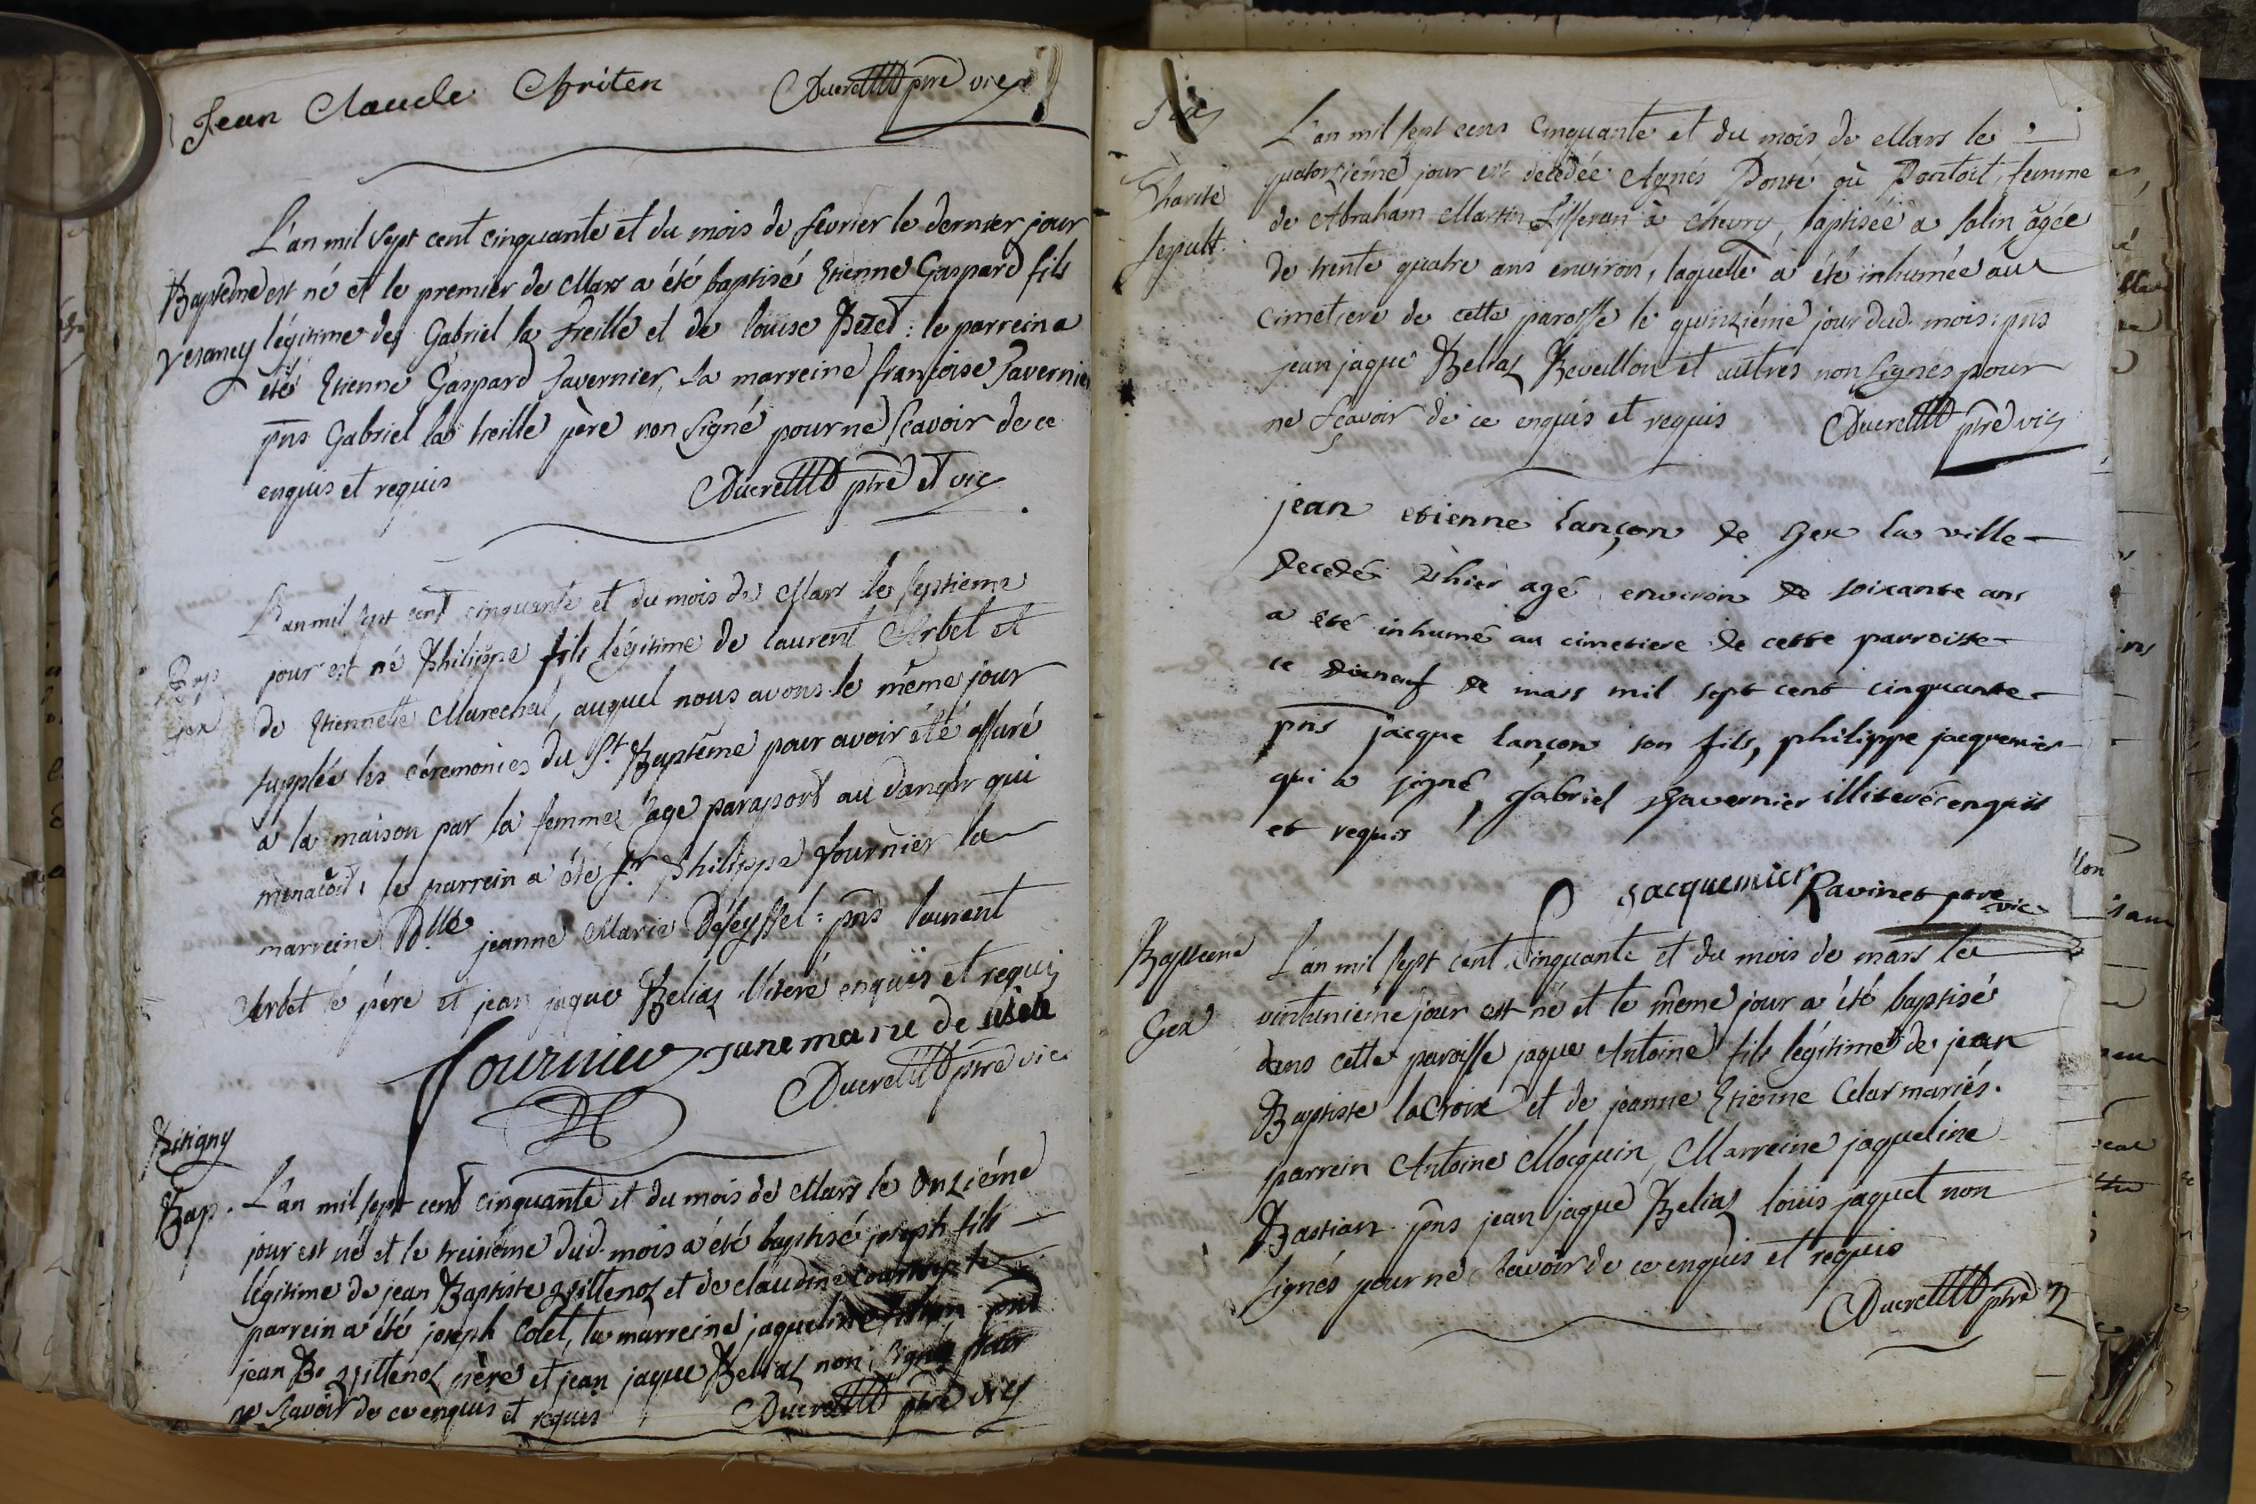 Jean Claude
Ducrettt ptre vic
L'an mil sept cent cinquante et du mois de février le dernier jour
Baptême est né et le premier de Mars a été baptisé Etienne Gaspard fils
Vesancy légitime de Gabriel la Treille et de Louise Bezet : le parrein a
été Etienne Gaspard Tavernier, la marreine françoise Tavernier
pns Gabriel la treille père non signé pour ne sçavoir de ce
enquis et requis Ducrettt ptre et vic
L'an mil sept cent cinquante et du mois de Mars le septieme
Bap jour est né Philippe fils légitime de laurent Arbet et
gex de Etiennette Marechal, auquel nous avons le même jour
supplée les céremonies du St Baptême pour avoir été assuré
à la maison par la femme sage paraport au danger qui
menacoit, le parrein a été sr Philippe fournier la
marreine Dlle jeanne Marie Deleyssel : pns laurent
Arbet le père et jean jaque Beliaz illiteré enquis et requis
fournier june marie de
Ducrettt ptre vic
Pitigny
Bap. L'an mil sept cent cinquante et du mois de Mars le onziéme
jour est né et le treisiéme dud. mois a été baptisé joseph fils
légitime de jean Baptiste et de claudine le
parrein a été joseph Colet, la marreine jaqueline pns
jean Bte père et jean jaque Beliaz non signés pour
ne sçavoir de ce enquis et requis Ducrettt ptre vic
Gex
L'an mil sept cens Cinquante et du mois de Mars le
quatorziéme jour est decedée Agnés Donté où Pontoit, femme
Charité de Abraham Martin Tisseran à chevry, baptisée a salin âgée
sepult. de trente quatre ans environ, laquelle a été inhumée au
cimetiere de cette paroisse le quinziéme jour dud. mois : pns
jean jaque Beliaz Reveillon et autres non signés pour
ne sçavoir de ce enquis et requis Ducrettt ptre vic
jean etienne lançon de Gex la ville
decedé d'hier agé environ de soixante ans
a été inhumé au cimetiere de cette parroisse
ce dixneuf de mars mil sept cent cinquante
pns jacque lançon son fils, philippe jacquemier
qui a signé, gabriel Tavernier illiteré enquis
et requis
Jacquemier Ravinet ptre vic
Baptême L'an mil sept cent cinquante et du mois de mars le
Gex vintunieme jour est né et le même jour a été baptisé
dans cette paroisse jaque Antoine fils légitime de jean
Baptiste laCroix et de jeanne Etienne Celar mariés.
parrein Antoine Mocquin, Marreine jaqueline
Bastian. pns jean jaque Beliaz louis jaquet non
signés pour ne sçavoir de ce enquis et requis
Ducrettt ptre